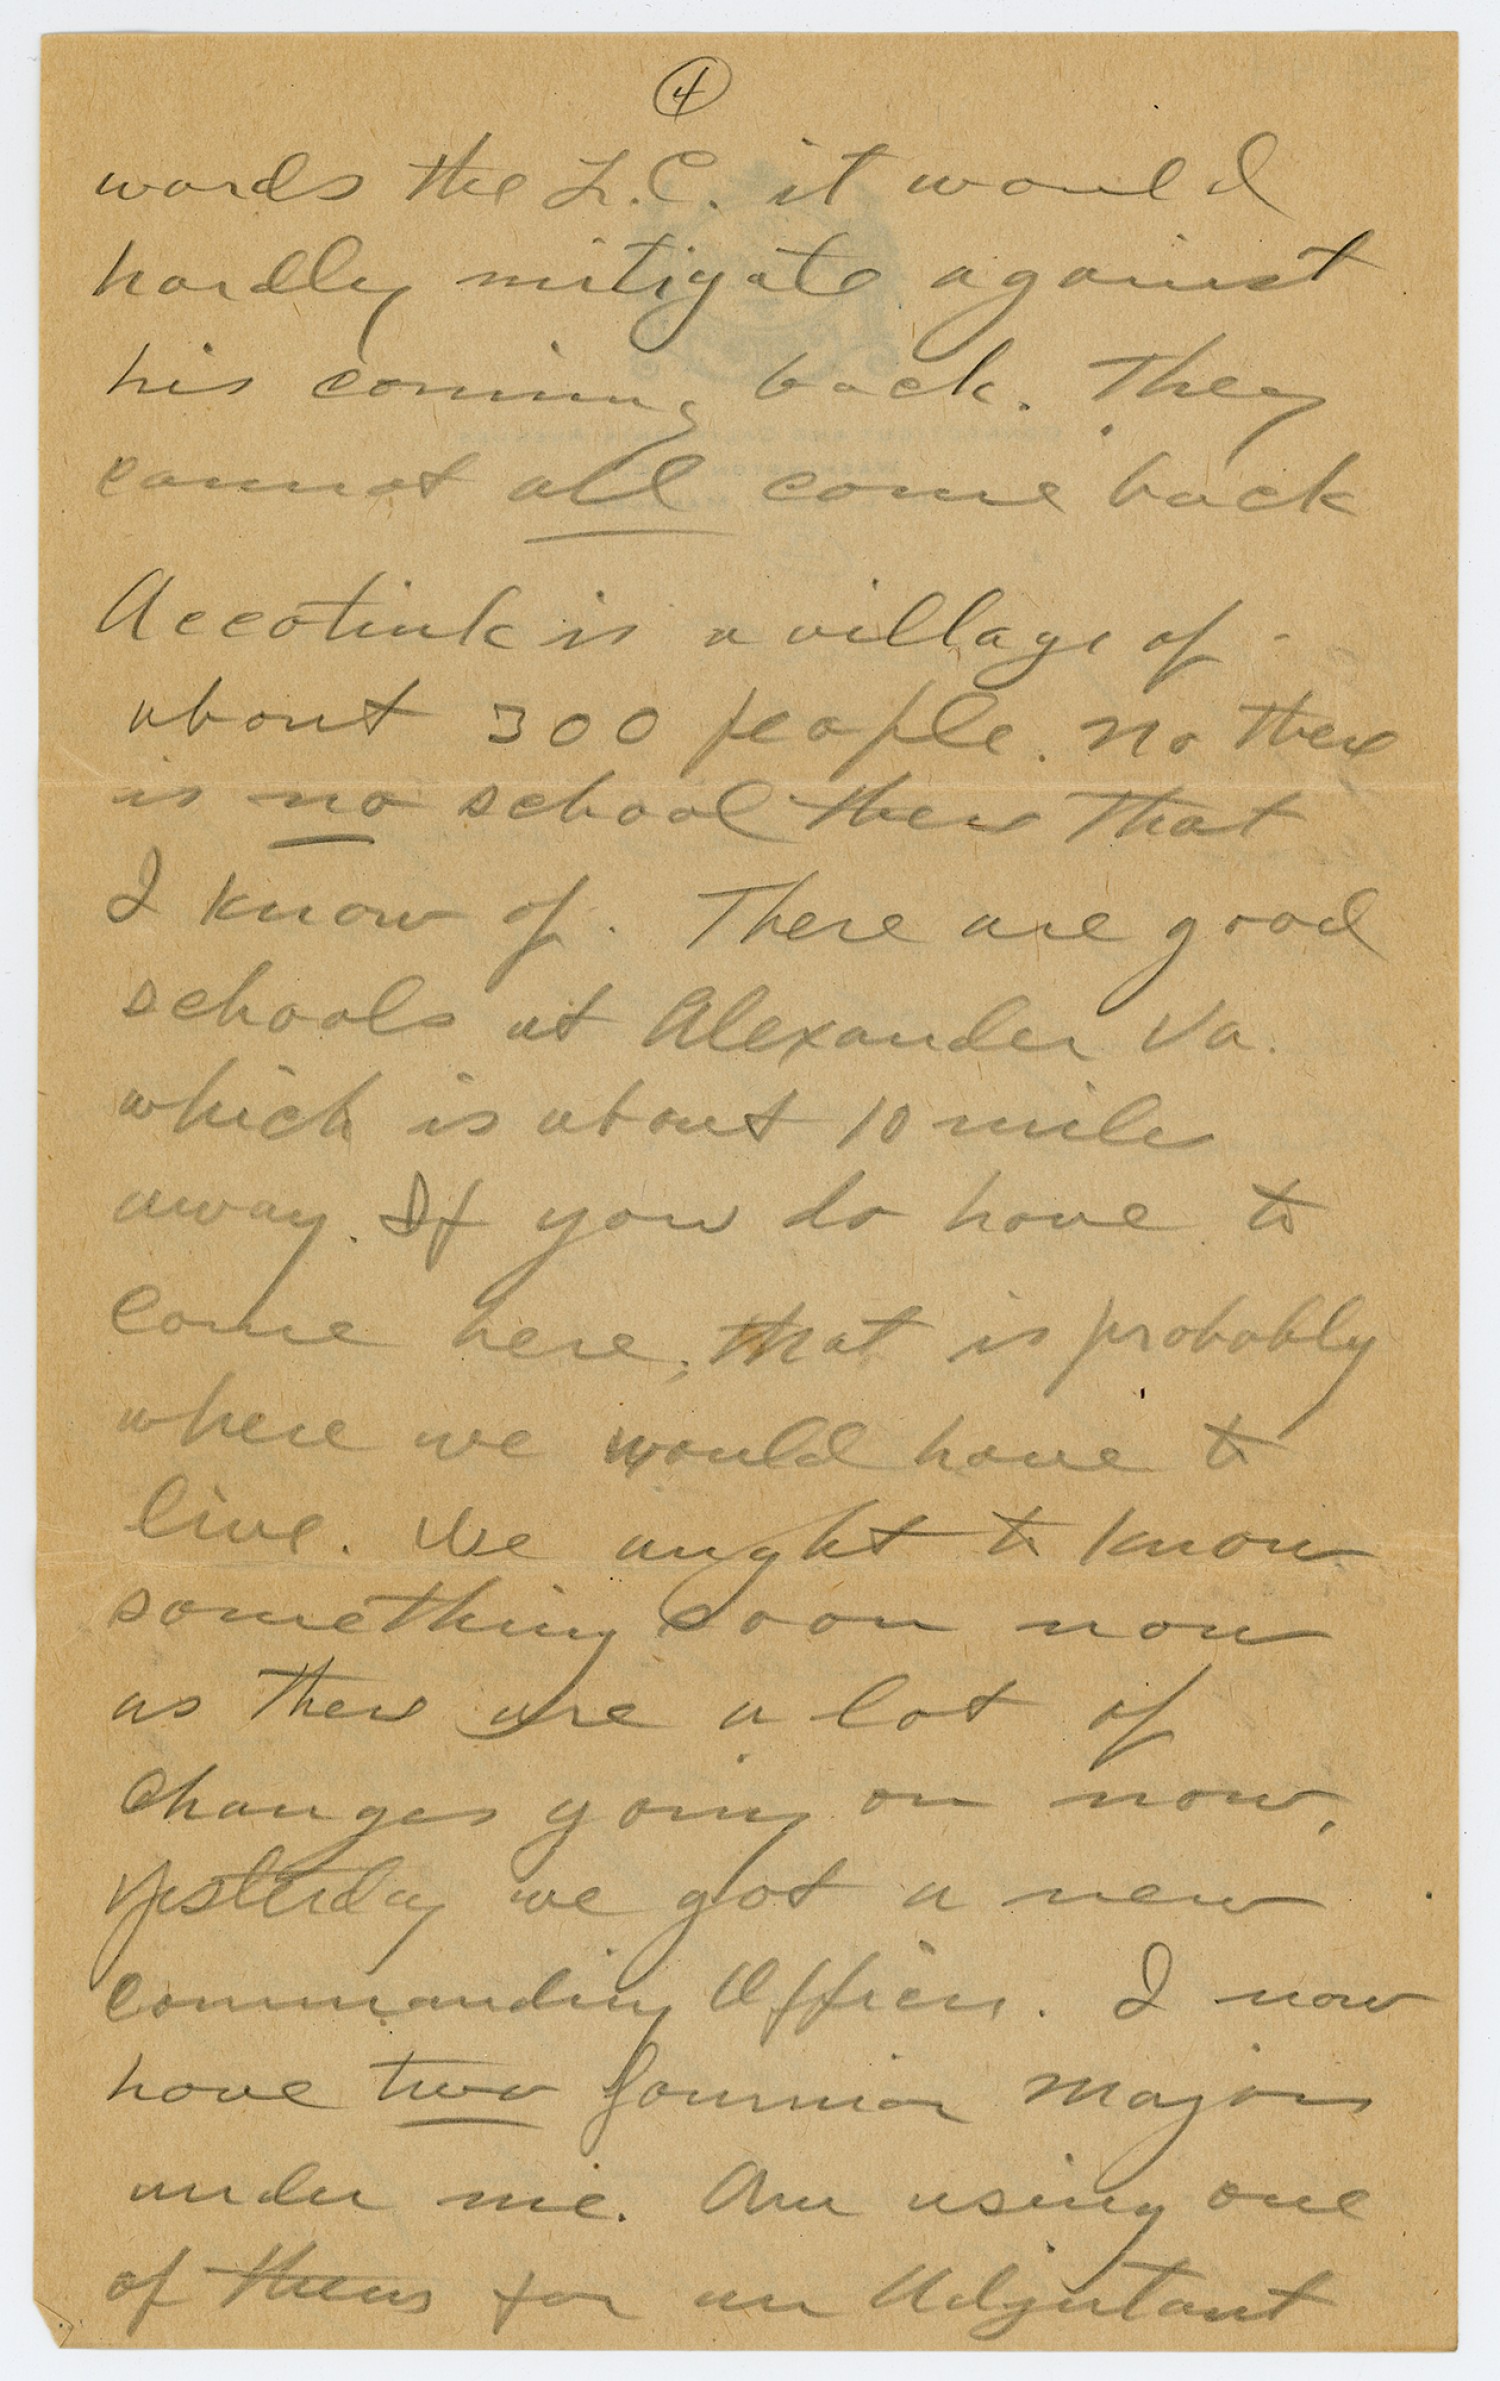 4
words the L.C. it would
hardly mitigate against
his coming back. They
cannot all come back
Accotink is a village of
about 300 people. No there
is no school there that
I know of. There are good
schools at Alexander Va.
which is about 10 miles
away. If you do have to
come here, that is probably
where we would have to
live. We aught to know
something soon now
as there are a lot of
changes going on now,
yesterday we got a new
Commanding Officer. I now
have two Junior Majors
under me. Am using one
of them for an Adjutant